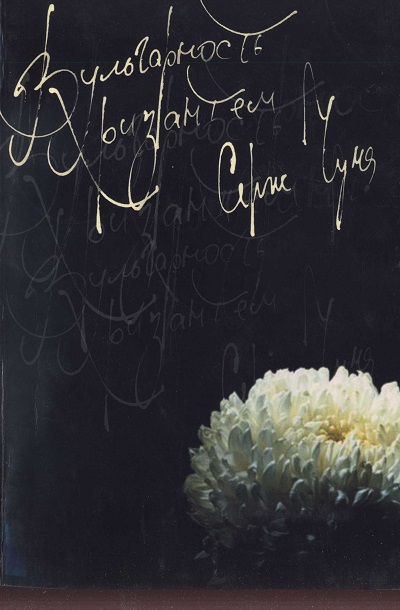 Вульгарность
Хризантем Гу
Серж Гуня